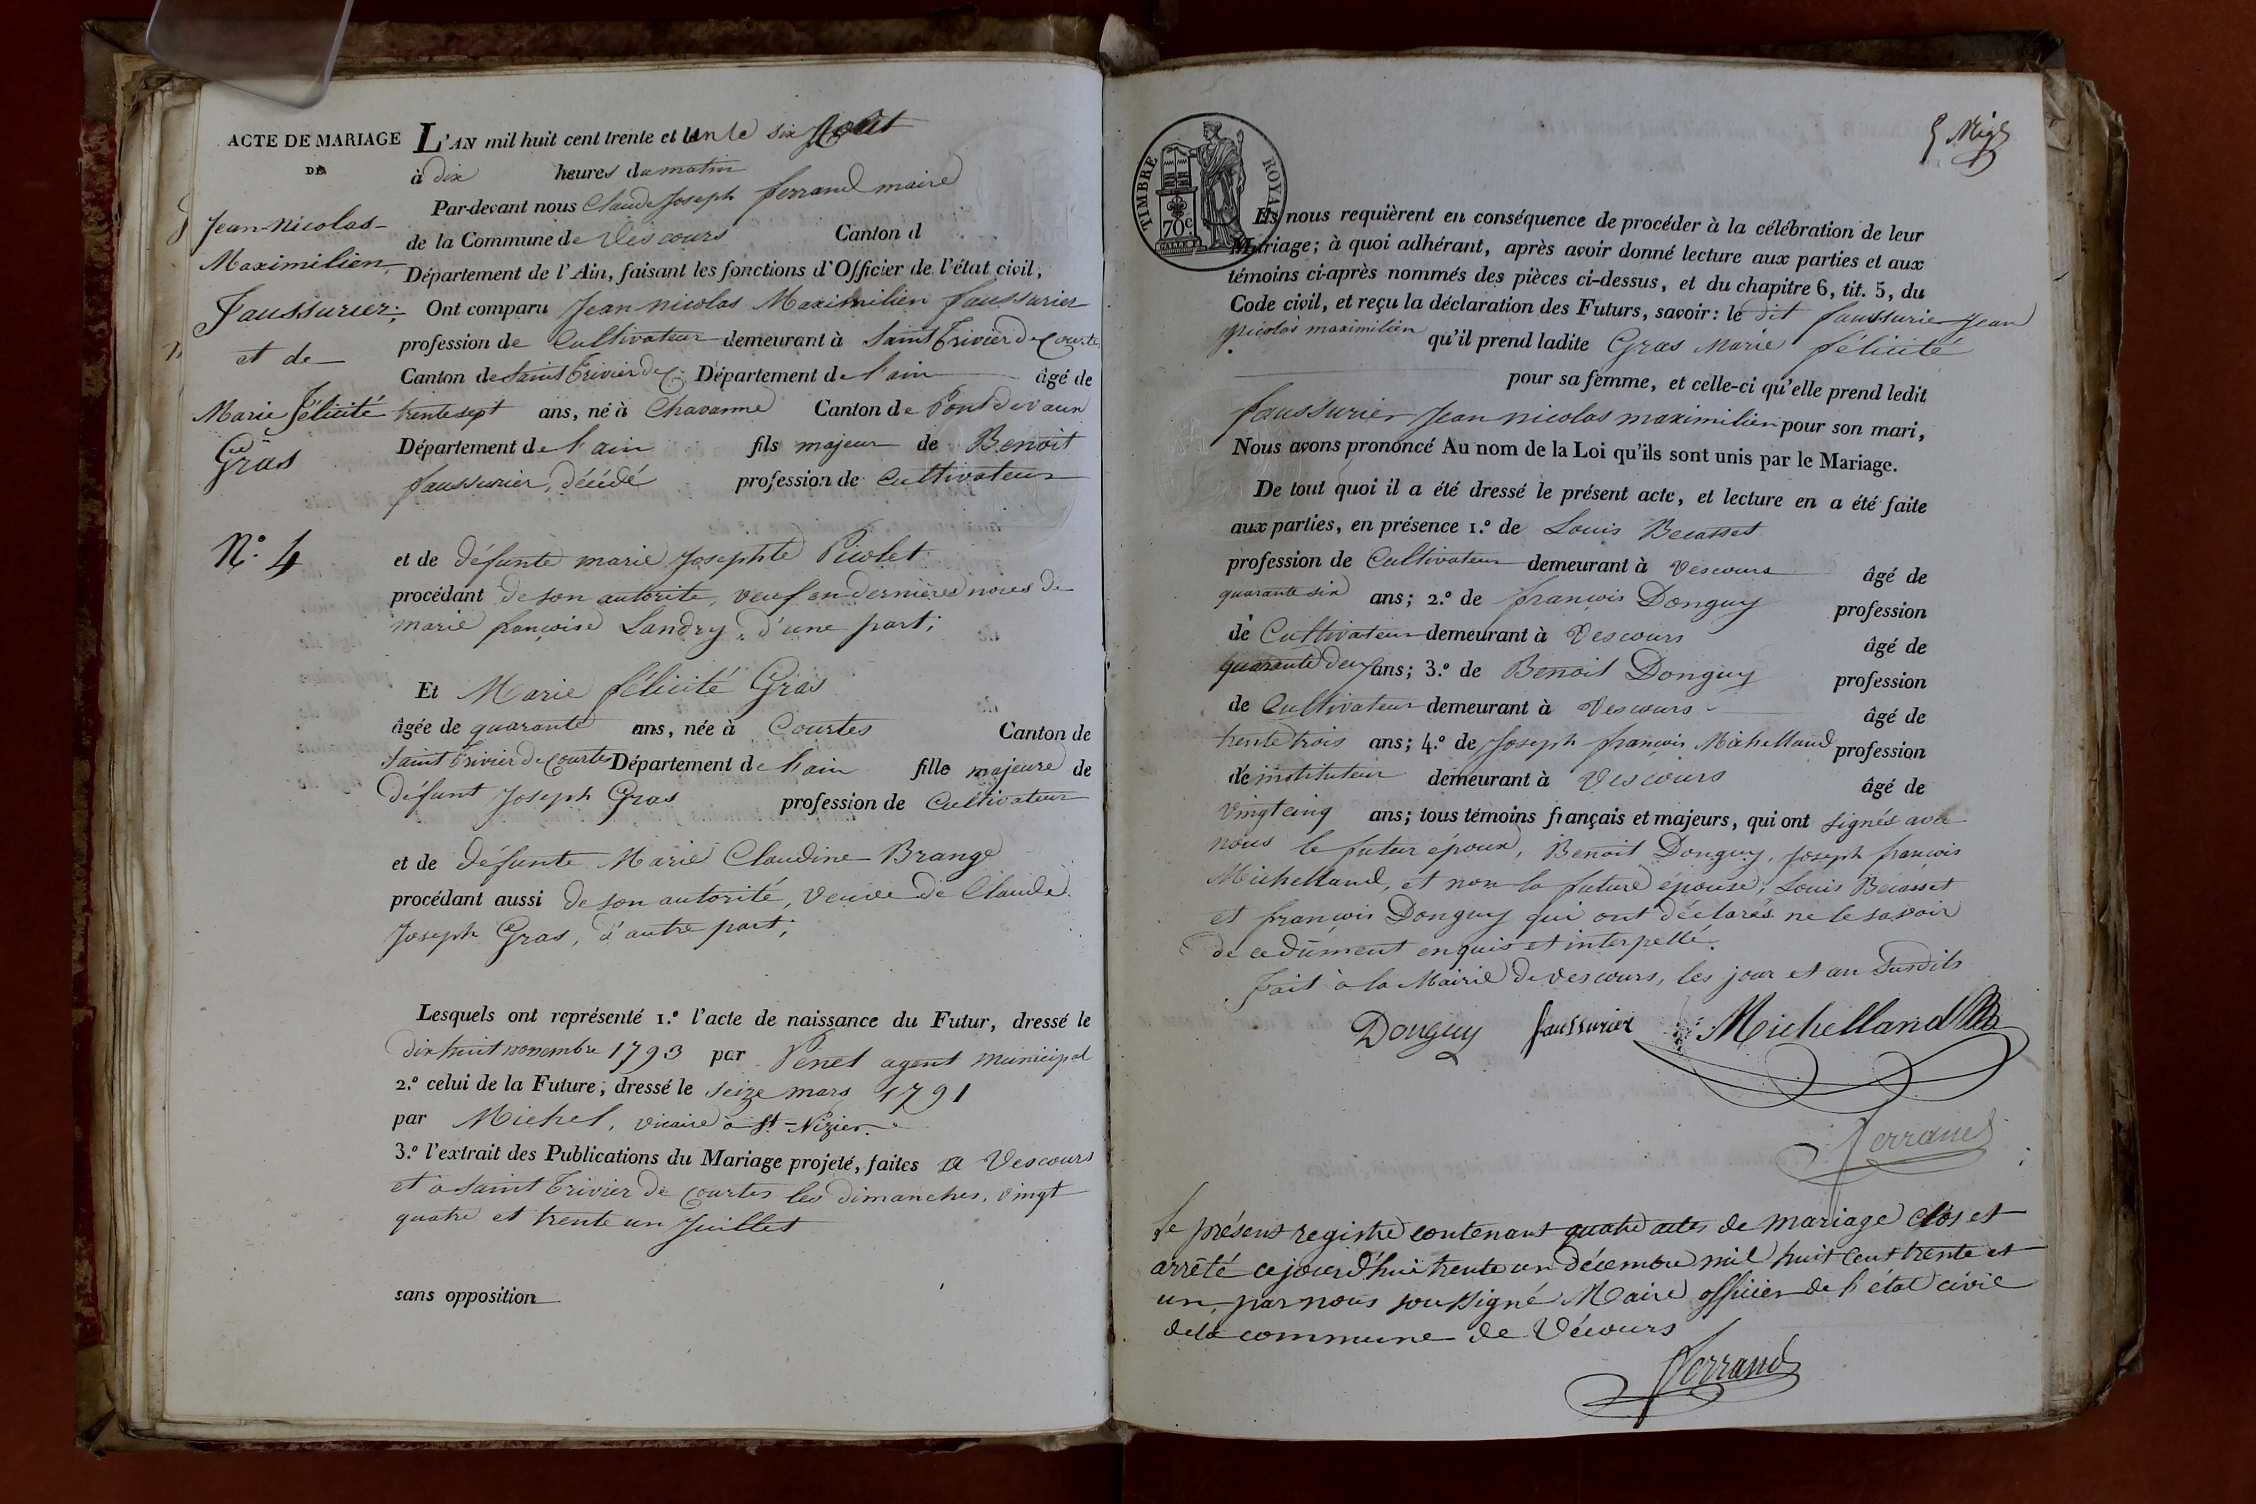 ACTE DE MARIAGE
DE
Jean-Nicolas-
Maximilien
Faussurier;
et de
Marie Félicité
Gras
N.º 4
L'AN mil huit cent trente et un le six Août
à dix heures du matin
Par-devant nous Claude Joseph ferrand maire
de la Commune de Vescours Canton d
Département de l'Ain, faisant les fonctions d'Officier de l'état civil,
Ont comparu Jean nicolas Maximilien faussurier
profession de Cultivateur demeurant à Saint Trivier de Courtes
Canton de Saint Trivier de C. Département de l'ain âgé de
trente sept ans, né à Chavanne Canton de Pont de vaux
Département de l'ain fils majeur de Benoit
faussurier, décédé profession de Cultivateur
et de défunte marie Josephte Picolet
procédant de son autorité, veuf en dernières noces de
marie françoise Landry, d'une part;
Et Marie félicité Gras
âgée de quarante ans, née à Courtes Canton de
Saint Trivier de Courtes Département de l'ain fille majeure de
défunt Joseph Gras profession de Cultivateur
et de défunte Marie Claudine Brange
procédant aussi de son autorité, veuve de Claude
Joseph Gras, d'autre part;
Lesquels ont représenté 1.º l'acte de naissance du Futur, dressé le
dix huit novembre 1793 par Penet agent municipal
2.º celui de la Future, dressé le seize mars 1791
par Michel, vicaire à St-Nizier.
3.º l'extrait des Publications du Mariage projeté, faites à Vescours
et à Saint Trivier de Courtes les dimanches, vingt
quatre et trente un Juillet
sans opposition
TIMBRE ROYAL
70c
Ils nous requièrent en conséquence de procéder à la célébration de leur
Mariage; à quoi adhérant, après avoir donné lecture aux parties et aux
témoins ci-après nommés des pièces ci-dessus, et du chapitre 6, tit. 5, du
Code civil, et reçu la déclaration des Futurs, savoir: le dit faussurier Jean
Nicolas maximilien qu'il prend ladite Gras Marie félicité
pour sa femme, et celle-ci qu'elle prend ledit
faussurier Jean nicolas maximilien pour son mari,
Nous avons prononcé Au nom de la Loi qu'ils sont unis par le Mariage.
De tout quoi il a été dressé le présent acte, et lecture en a été faite
aux parties, en présence 1.º de Louis Becasset
profession de Cultivateur demeurant à Vescours âgé de
quarante six ans; 2.º de françois Donguy profession
de Cultivateur demeurant à Vescours âgé de
quarante deux ans; 3.º de Benoit Donguy profession
de Cultivateur demeurant à Vescours âgé de
trente trois ans; 4.º de Joseph françois Michelland profession
de instituteur demeurant à Vescours âgé de
vingt cinq ans; tous témoins français et majeurs, qui ont signés avec
nous le futur époux, Benoit Donguy, Joseph françois
Michelland, et non la future épouse, Louis Becasset
et françois Donguy qui ont déclarés ne le savoir
de ce dûment enquis et interpellé.
fait à la Mairie de vescours, les jour et an susdits
Donguy faussurier Michelland
ferrand
Le présent registre contenant quatre actes de mariage clos et
arrêté cejourd'hui trente un décembre mil huit cent trente et
un, par nous soussigné Maire officier de l'état civil
de la commune de Vécours
ferrand